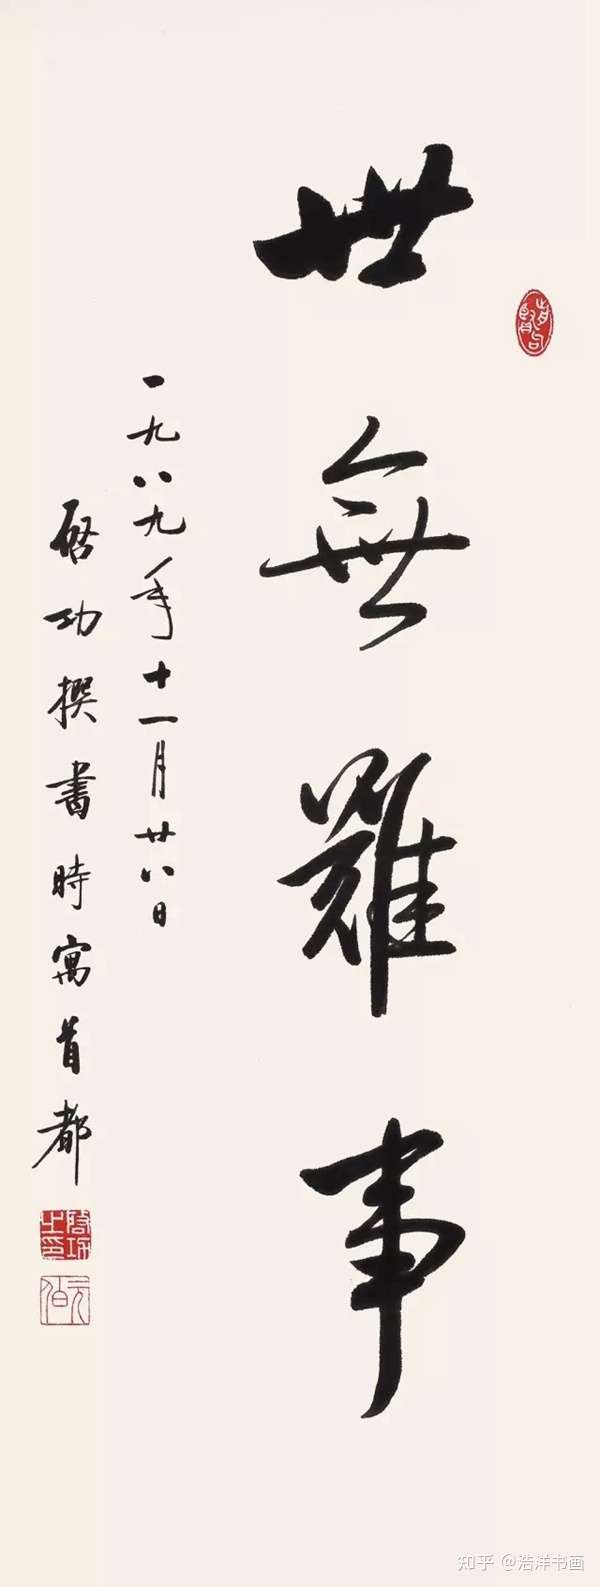 世無難事
一九八九年十一月廿八日
启功撰書時寓首都
启功之印
元白
知乎 @浩洋书画